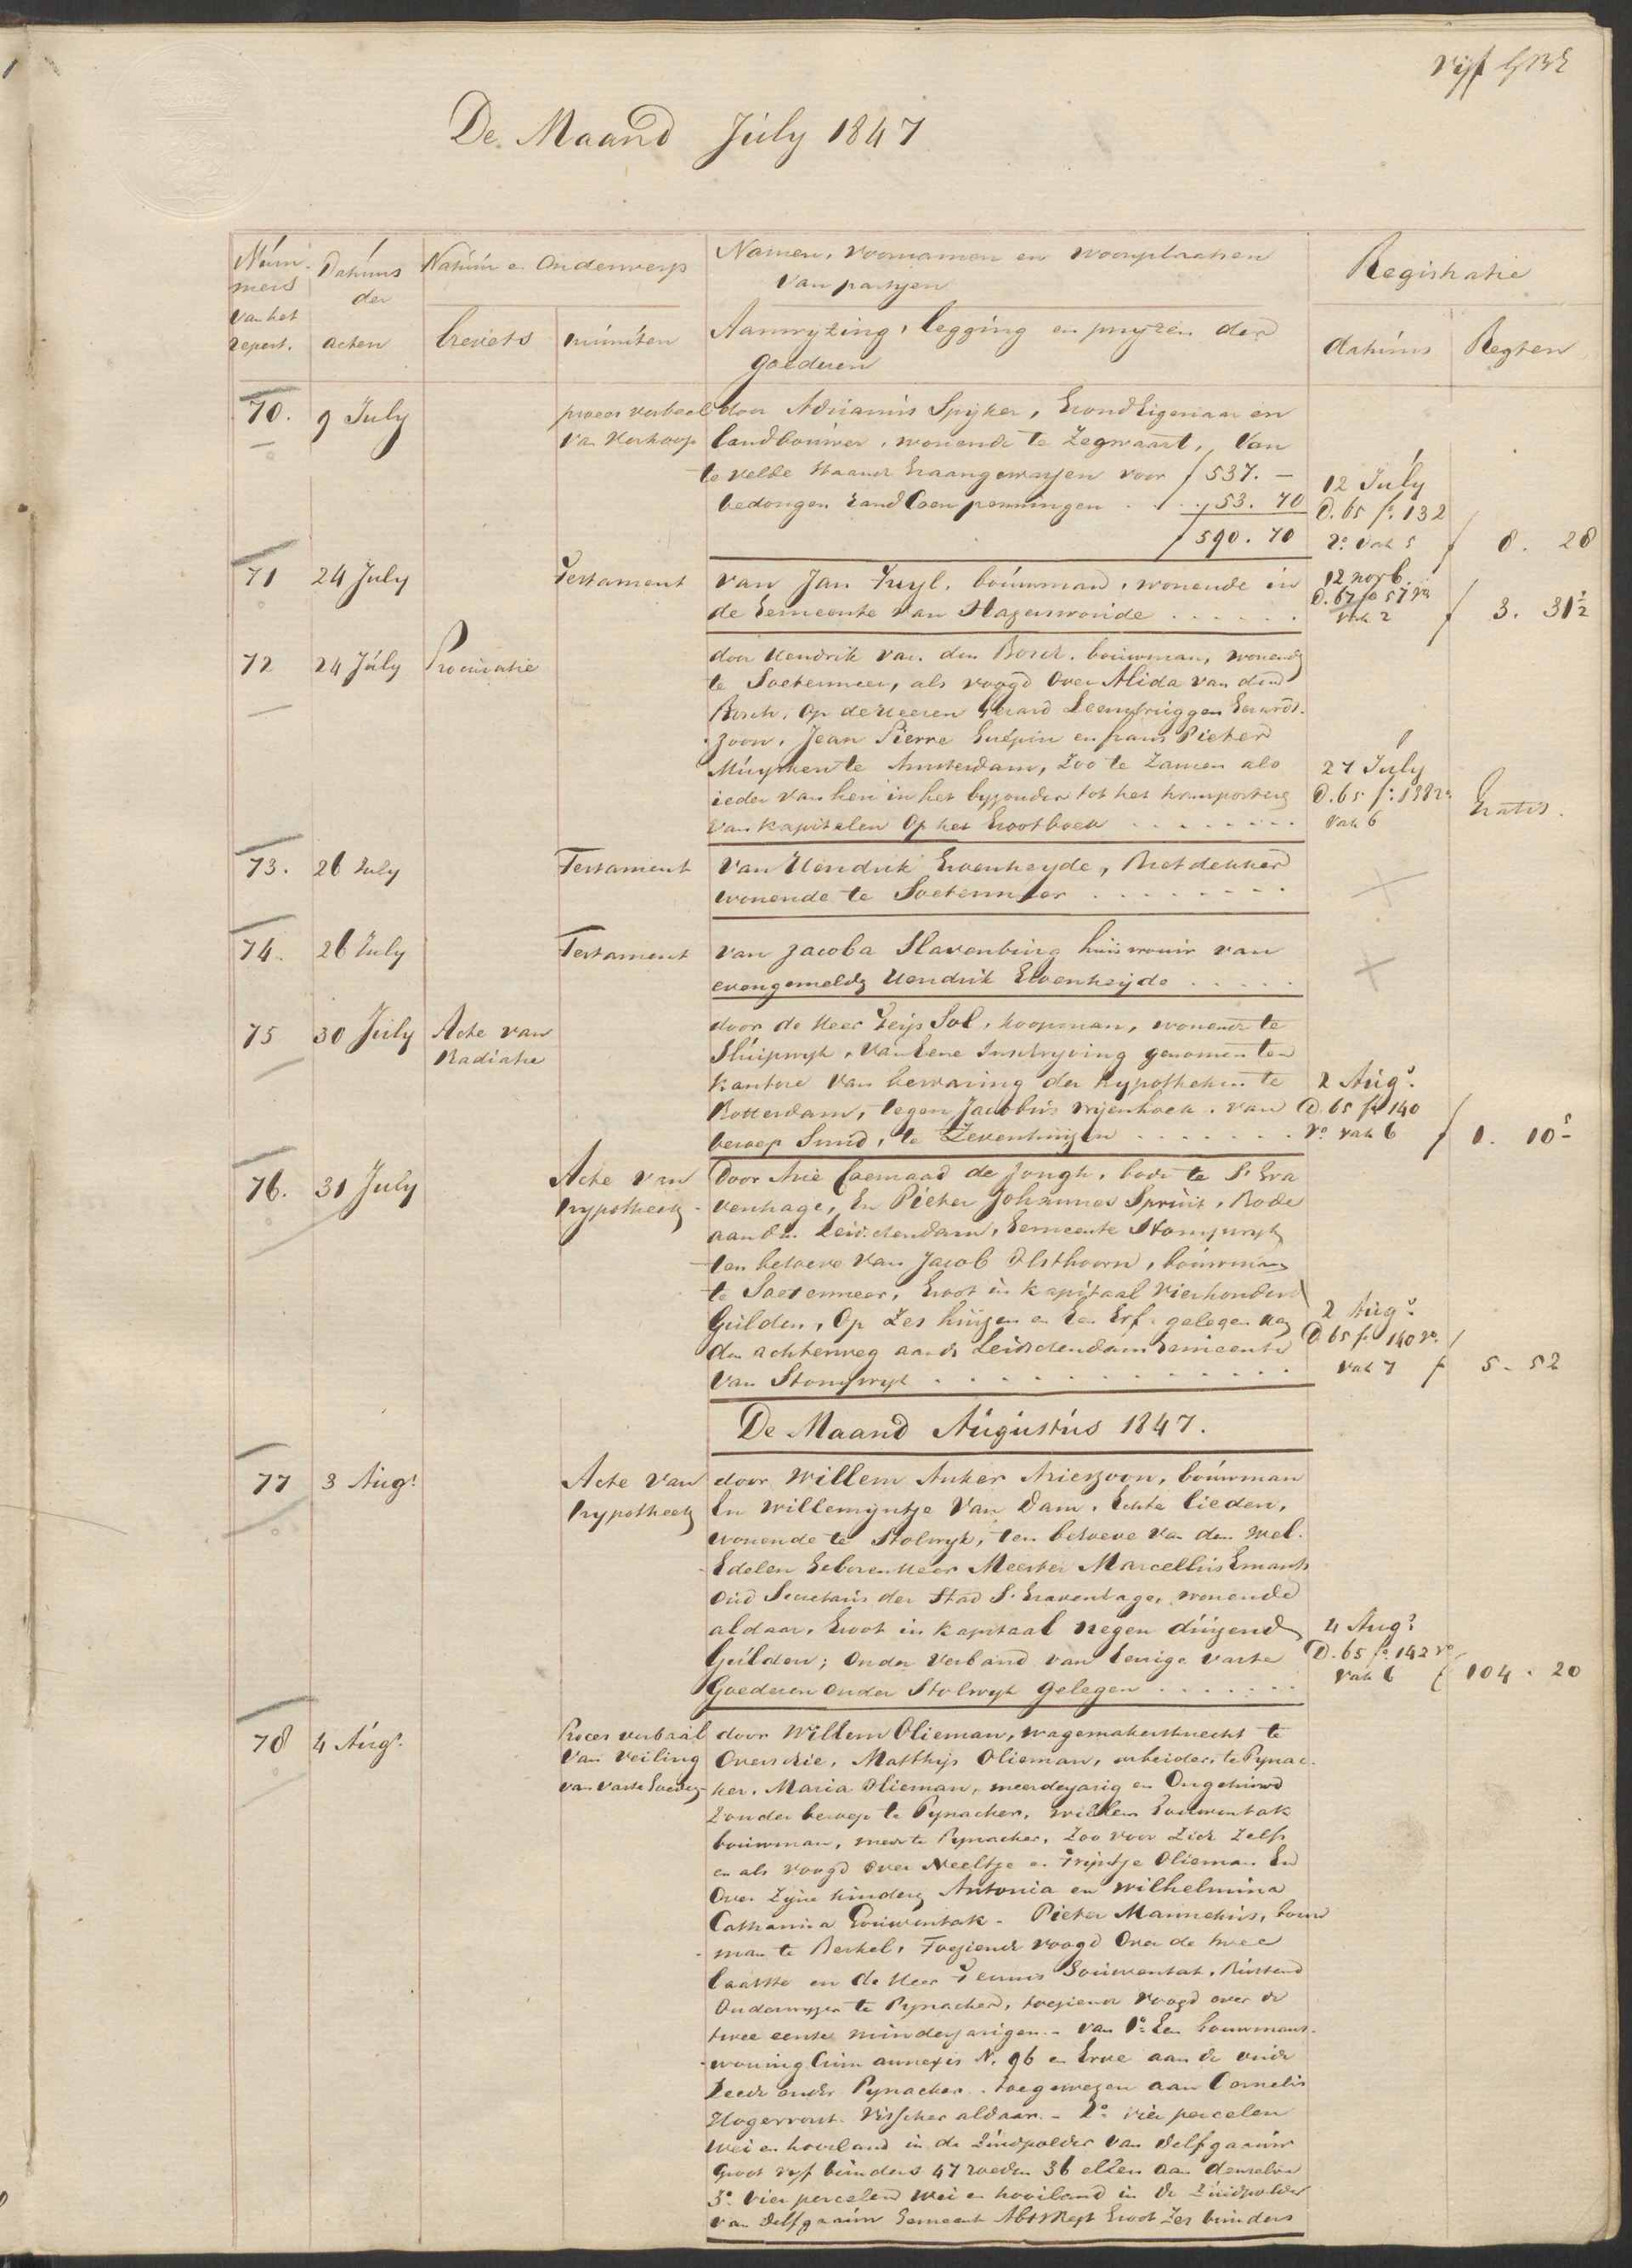 vijf
De Maand July 1847
Num
mers
van het
repert.
Datums
der
acten
Natuur en Onderwerp
brevets
minuten
Namen, voornamen en woonplaatsen
van partijen
Aanwyzing, legging en pryzen der
goederen
Registratie
datums
Regten
70. 9 July
proces verbaal
van Verkoop
door Adrianus Spyker, Grond Eigenaar en
landbouwer, wonende te Zegwaart, van
te velde staande Graangewassen voor f 537. –
bedongen rand Coen penningen . . . 53. 70
f 590. 70
12 July
D. 65 f° 132
v° vak 5
f 8. 28
71 24 July
Testament
van Jan Tuyl, bouwman, wonende in
de Gemeente van Hazerswoude . . . . . .
12 novb.
D. 67 f° 57 v°
vak 2
f 3. 31½
72 24 July Procuratie
door Hendrik van den Bosch, bouwman, wonende
te Soetermeer, als voogd over Alida van den
Bosch, op de Heeren Gerard Leembruggen Gerards-
zoon, Jean Pierre Guépin en frans Pieter
Muysken te Amsterdam, zoo te zamen als
ieder van hen in het byzonder tot het transporteren
van kapitalen op het Grootboek . . . . . . .
27 July
D. 65 f° 138 v°
vak 6
Gratis.
73. 26 July
Testament
van Hendrik Groenheyde, Rietdekker
wonende te Soetermeer . . . . . . . .
74. 26 July
Testament
van Jacoba Slavenburg huisvrouw van
evengemelde Hendrik Groenheyde . . . . .
75 30 July Acte van
Radiatie
door de Heer Teys Sol, koopman, wonende te
Sluipwyk, van Eene Inschryving genomen ten
kantore van bewaring der hypotheken te
Rotterdam, tegen Jacobus vryenhoek, van
beroep Smid, te Zevenhuizen . . . . . . .
2 Aug.
D. 65 f° 140
v° vak 6
f 1. 10
76. 31 July
Acte van
hypotheek
Door Arie Coenraad de Jongh, bode te S' Gra
venhage, En Pieter Johannes Spruit, Bode
aan den Leidschendam, Gemeente Stompwyk
ten behoeve van Jacob Olsthoorn, bouwman
te Soetermeer, Groot in kapitaal vierhonderd
Gulden, Op zes huizen en Een Erf gelegen aan
den achterweg aan de Leidschendam Gemeente
van Stompwyk . . . . . . . . . . . . .
2 Aug.
D. 65 f° 140 v°
vak 7
f 5. 52
De Maand Augustus 1847.
77 3 Aug.
Acte van
hypotheek
door Willem Anker Arieszoon, bouwman
En Willemyntje van Dam, Echte lieden,
wonende te Stolwyk, ten behoeve van den Wel-
Edelen Geboren Heer Meester Marcellus Emants
Oud Secretaris der Stad S' Gravenhage, wonende
aldaar, Groot in kapitaal negen duizend
Gulden; onder verband van Eenige vaste
Goederen onder Stolwyk gelegen . . . . . . .
4 Aug.
D. 65 f° 142 v°
vak 6
f 104. 20
78 4 Aug.
Proces verbaal
van veiling
van vaste Goederen
door Willem Olieman, wagemakersknecht te
Overschie, Matthijs Olieman, arbeider, te Pynac-
ker, Maria Olieman, meerderjarig en Ongehuwd
zonder beroep te Pynacker, Willem Gouwentak
bouwman, mede te Pynacker, zoo voor zich zelf
en als voogd over Neeltje en Tryntje Olieman En
Over zyne kinderen Antonia en Wilhelmina
Catharina Gouwentak. Pieter Mannekus, bouw
man te Berkel, Toeziende voogd over de twee
laatste en de Heer Teunis Gouwentak, Rustend
Onderwyzer te Pynacker, toeziende voogd over de
twee eerste minderjarigen. van 1° Een bouwmans-
woning Cum annexis N. 96 en Erve aan de oude
Leede onder Pynacker, toegewezen aan Cornelis
Hogervorst. Visscher aldaar. 2° vier percelen
wei en hooiland in de Zuidpolder van Delfgaauw
Groot vyf bunders 47 roeden 36 ellen aan denzelve
3° vier percelen wei en hooiland in de Zuidpolder
van Delfgaauw Gemeente Abtsregt Groot zes bunders